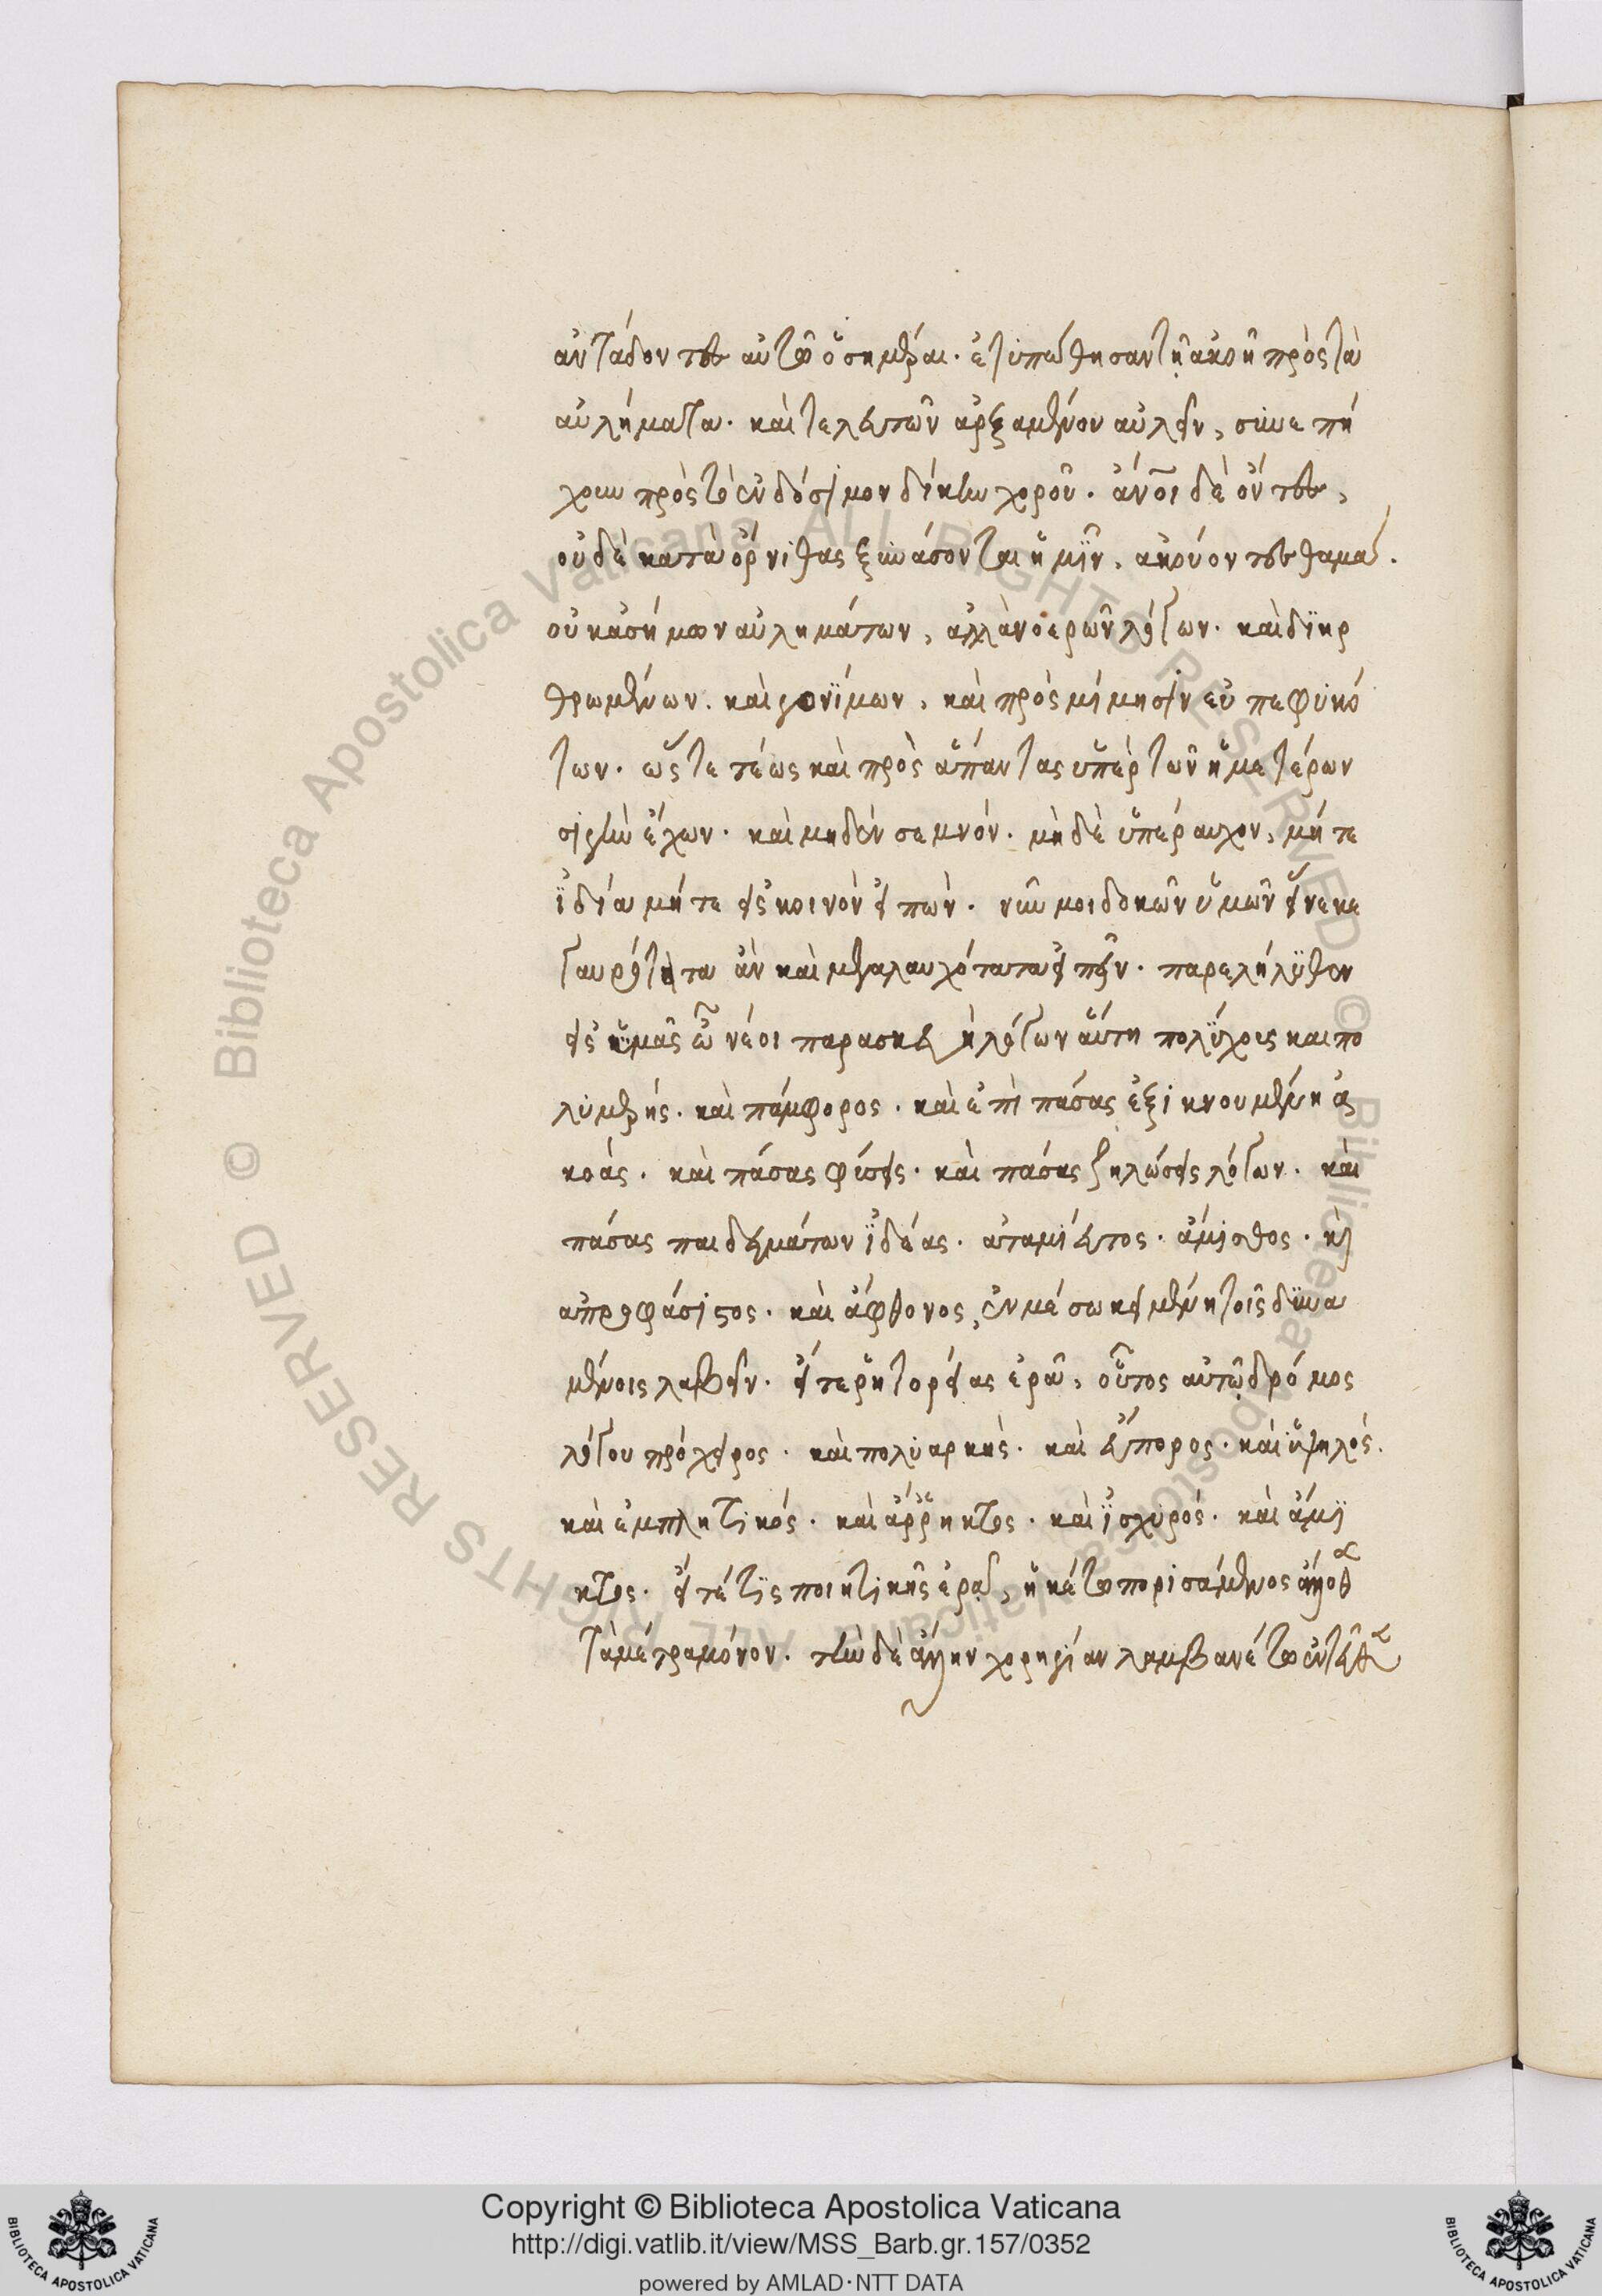 ἀντάδοντες αὐτῷ ὁσημέραι. ἐτυπώθησαν τῇ ἀκοῇ πρὸς τὰ
αὐλήματα. καὶ τελευτῶν ἀρξαμένου αὐλεῖν, συνεπή
χουν πρὸς τὸ ἐνδόσιμον δίκην χοροῦ. ἄνοι δὲ ὄντες,
οὐδὲ κατὰ ὄρνιθας ξυνάσονται ἡμῖν, ἀκούοντες θαμα.
οὐκ ἀσήμων αὐλημάτων, ἀλλὰ νοερῶν λόγων. καὶ διηρ
θρωμένων. καὶ γονίμων, καὶ πρὸς μίμησιν εὖ πεφυκό
των. ὥστε τέως καὶ πρὸς ἅπαντας ὑπὲρ τῶν ἡμετέρων
σιγὴν ἔχων. καὶ μηδὲν σεμνόν. μὴ δὲ ὑπέραυχον, μήτε
ἰδία μήτε εἰς κοινὸν εἰπών. νῦν μοι δοκῶν ὑμῶν εἵνεκε
γαυρότητα ἂν καὶ μεγαλαυχότατα εἰπεῖν. παρελήλυθεν
εἰς ἡμᾶς ὦ νέοι παρασκευὴ λόγων αὕτη πολύχους και πο
λυμερής. καὶ πάμφορος. καὶ ἐπὶ πάσας ἐξικνουμένη ἀ
κοάς. καὶ πάσας φύσεις. καὶ πάσας ζηλώσεις λόγων. καὶ
πάσας παιδευμάτων ἰδέας. ἀταμίευτος. ἄμισθος. καὶ
ἀπροφάσιστος. καὶ ἄφθονος, ἐν μέσω κειμένη τοῖς δυνα
μένοις λαβεῖν. εἴτε ῥητορείας ἐρᾶ, οὗτος αὐτῷ δρόμος
λόγου πρόχειρος. καὶ πολυαρκής. καὶ εὔπορος. καὶ ὑψηλός.
καὶ ἐμπληκτικός. καὶ ἄρρηκτος. καὶ ἰσχυρός. καὶ ἄμι
κτος. εἴτέ τις ποιητικῆς ἐρᾷ, ἡκέτω πορισάμενος ἄλλοθ
τὰ μέτρα μόνον. τὴν δὲ ἄλλην χορηγίαν λαμβανέτω ἐντεῦθ
Copyright © Biblioteca Apostolica Vaticana
http://digi.vatlib.it/view/MSS_Barb.gr.157/0352
powered by AMLAD·NTT DATA
BIBLIOTECA APOSTOLICA VATICANA
BIBLIOTECA APOSTOLICA VATICANA
© Biblioteca Apostolica Vaticana ALL RIGHTS RESERVED © Biblioteca Apostolica Vaticana ALL RIGHTS RESERVED